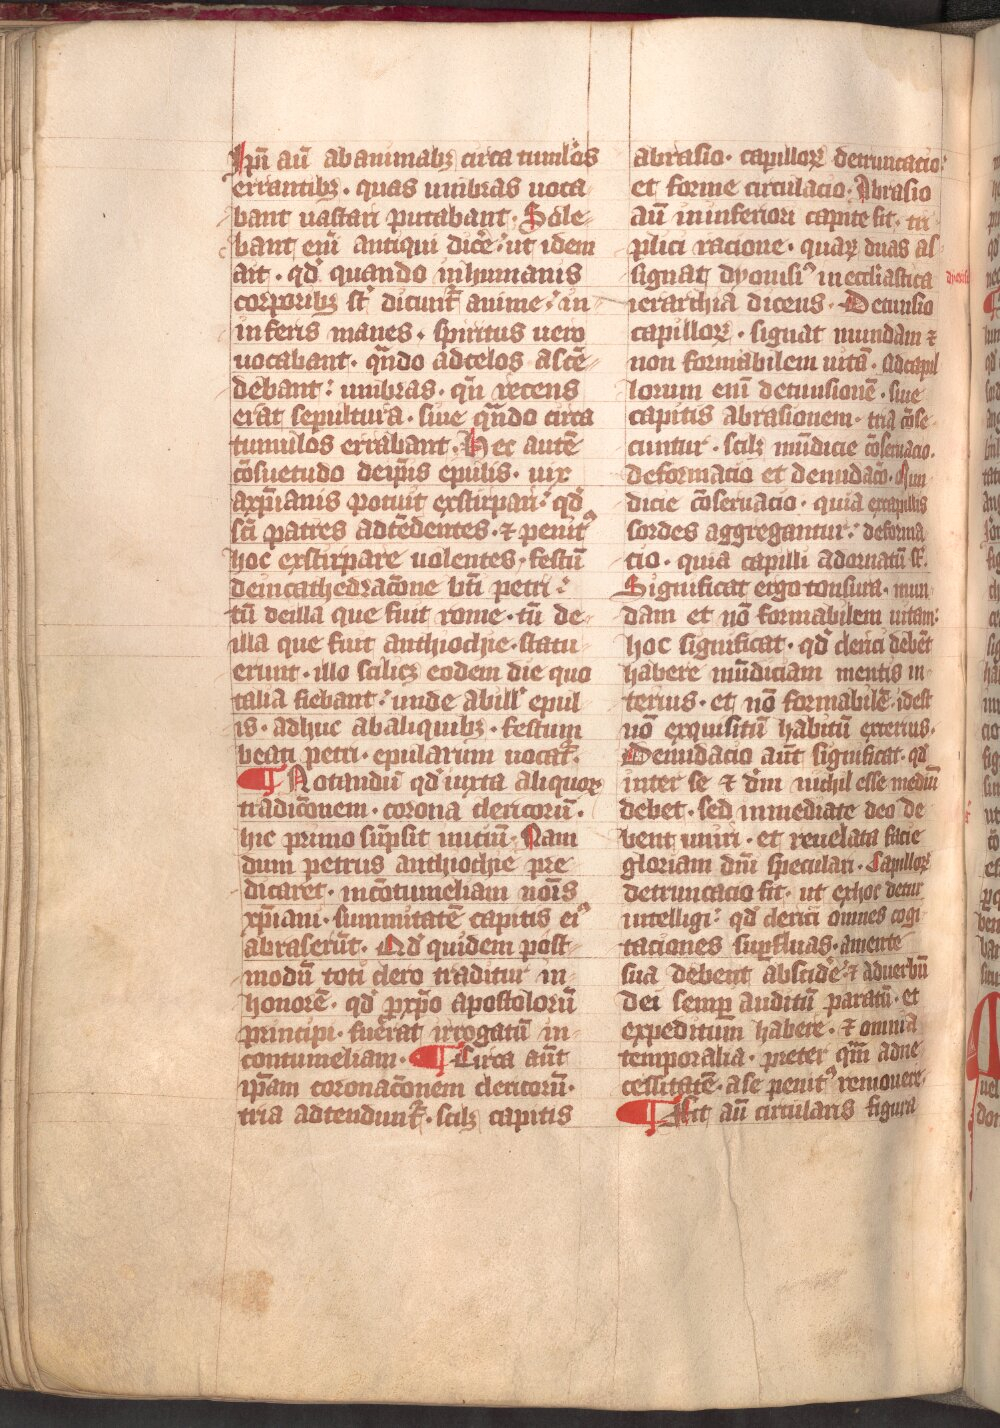 Ipi̅ au̅ ab animabꝫ circa tumlos
errantibꝫ · quas umbras uoca
bant uastari putabant · Sole
bant eni̅ antiqui dice̅ · ut idem
ait · qd̅ quando in humanis
corporibꝫ st̅ dicunt̅ anime · in
inferis manes · spiritus uero
uocabant · qn̅do ad celos asce̅
debant · umbras · qn̅ recens
erat sepultura · siue qn̅do circa
tumulos errabant · Hec aute̅
co̅suetudo de ip̅is epulis · uix
a xp̅ianis potuit exstirpari · qd̅
sc̅i patres adte̅dentes · ⁊ penitꝰ
hoc exstirpare uolentes · festu̅
de incathedrac̅one bt̅i petri ·
tu̅ de illa que fuit rome · tu̅ de
illa que fuit anthiochie · statu
erunt · illo scilicꝫ eodem die quo
talia fiebant · unde ab ill̅ epul
is · adhuc ab aliquibꝫ · festum
beati petri · epularum uocat̅ ·
¶ Notandu̅ qd̅ iuxta aliquoꝝ
tradic̅onem · corona clericoru̅ ·
hic primo su̅psit iniciu̅ · Nam
dum petrus anthiochie pre
dicaret · in co̅tumeliam no̅is
xp̅iani · summitate̅ capitis eiꝰ
abraseru̅t · Qd̅ quidem post
modu̅ toti clero traditur in
honore̅ · qd̅ ꝓ xp̅o apostoloru̅
principi · fuerat irrogatu̅ in
contumeliam · ¶ Circa au̅t
ip̅am coronac̅onem clericoru̅ ·
tria adtendunt̅ · scilꝫ capitis
abrasio · capilloꝝ detruncacio ·
et forme circulacio · Abrasio
au̅ in inferiori capite fit · tri
plici racione · quaꝝ duas as
signat dyonisiꝰ in ecclesiastica
ierarchia dicens · Detunsio
capilloꝝ · signat mundam ⁊
non formabilem uita̅ · ad capil
lorum eni̅ detunsione̅ · siue
capitis abrasionem · tria co̅se
cuntur · scilꝫ mu̅dicie co̅seruacio ·
deformacio et denudac̅o · Mun
dicie co̅seruacio · quia ex capillis
sordes aggregantur · deforma
cio · quia capilli ad ornatu̅ st̅ ·
Significat ergo tonsura · mun
dam et no̅ formabilem uitam ·
hoc significat · qd̅ clerici debe̅t
habere mu̅diciam mentis in
terius · et no̅ formabile̅ · idest
no̅ exquisitu̅ habitu̅ exterius ·
Denudacio au̅t significat · qd̅
inter se ⁊ dm̅ nichil esse mediu̅
debet · sed inmediate deo de
bent uniri · et reuelata facie
gloriam dn̅i speculari · Capilloꝝ
detruncacio fit · ut ex hoc detur
intelligi · qd̅ clerici omnes cogi
taciones suꝑfluas · a mente
sua debent abscide̅ · ⁊ ad uerbu̅
dei semꝑ auditu̅ paratu̅ · et
expeditum habere · ⁊ omnia
temporalia · preter qm̅ ad ne
cessitate̅ · a se penitꝰ remouere ·
¶ Fit au̅ circularis figura